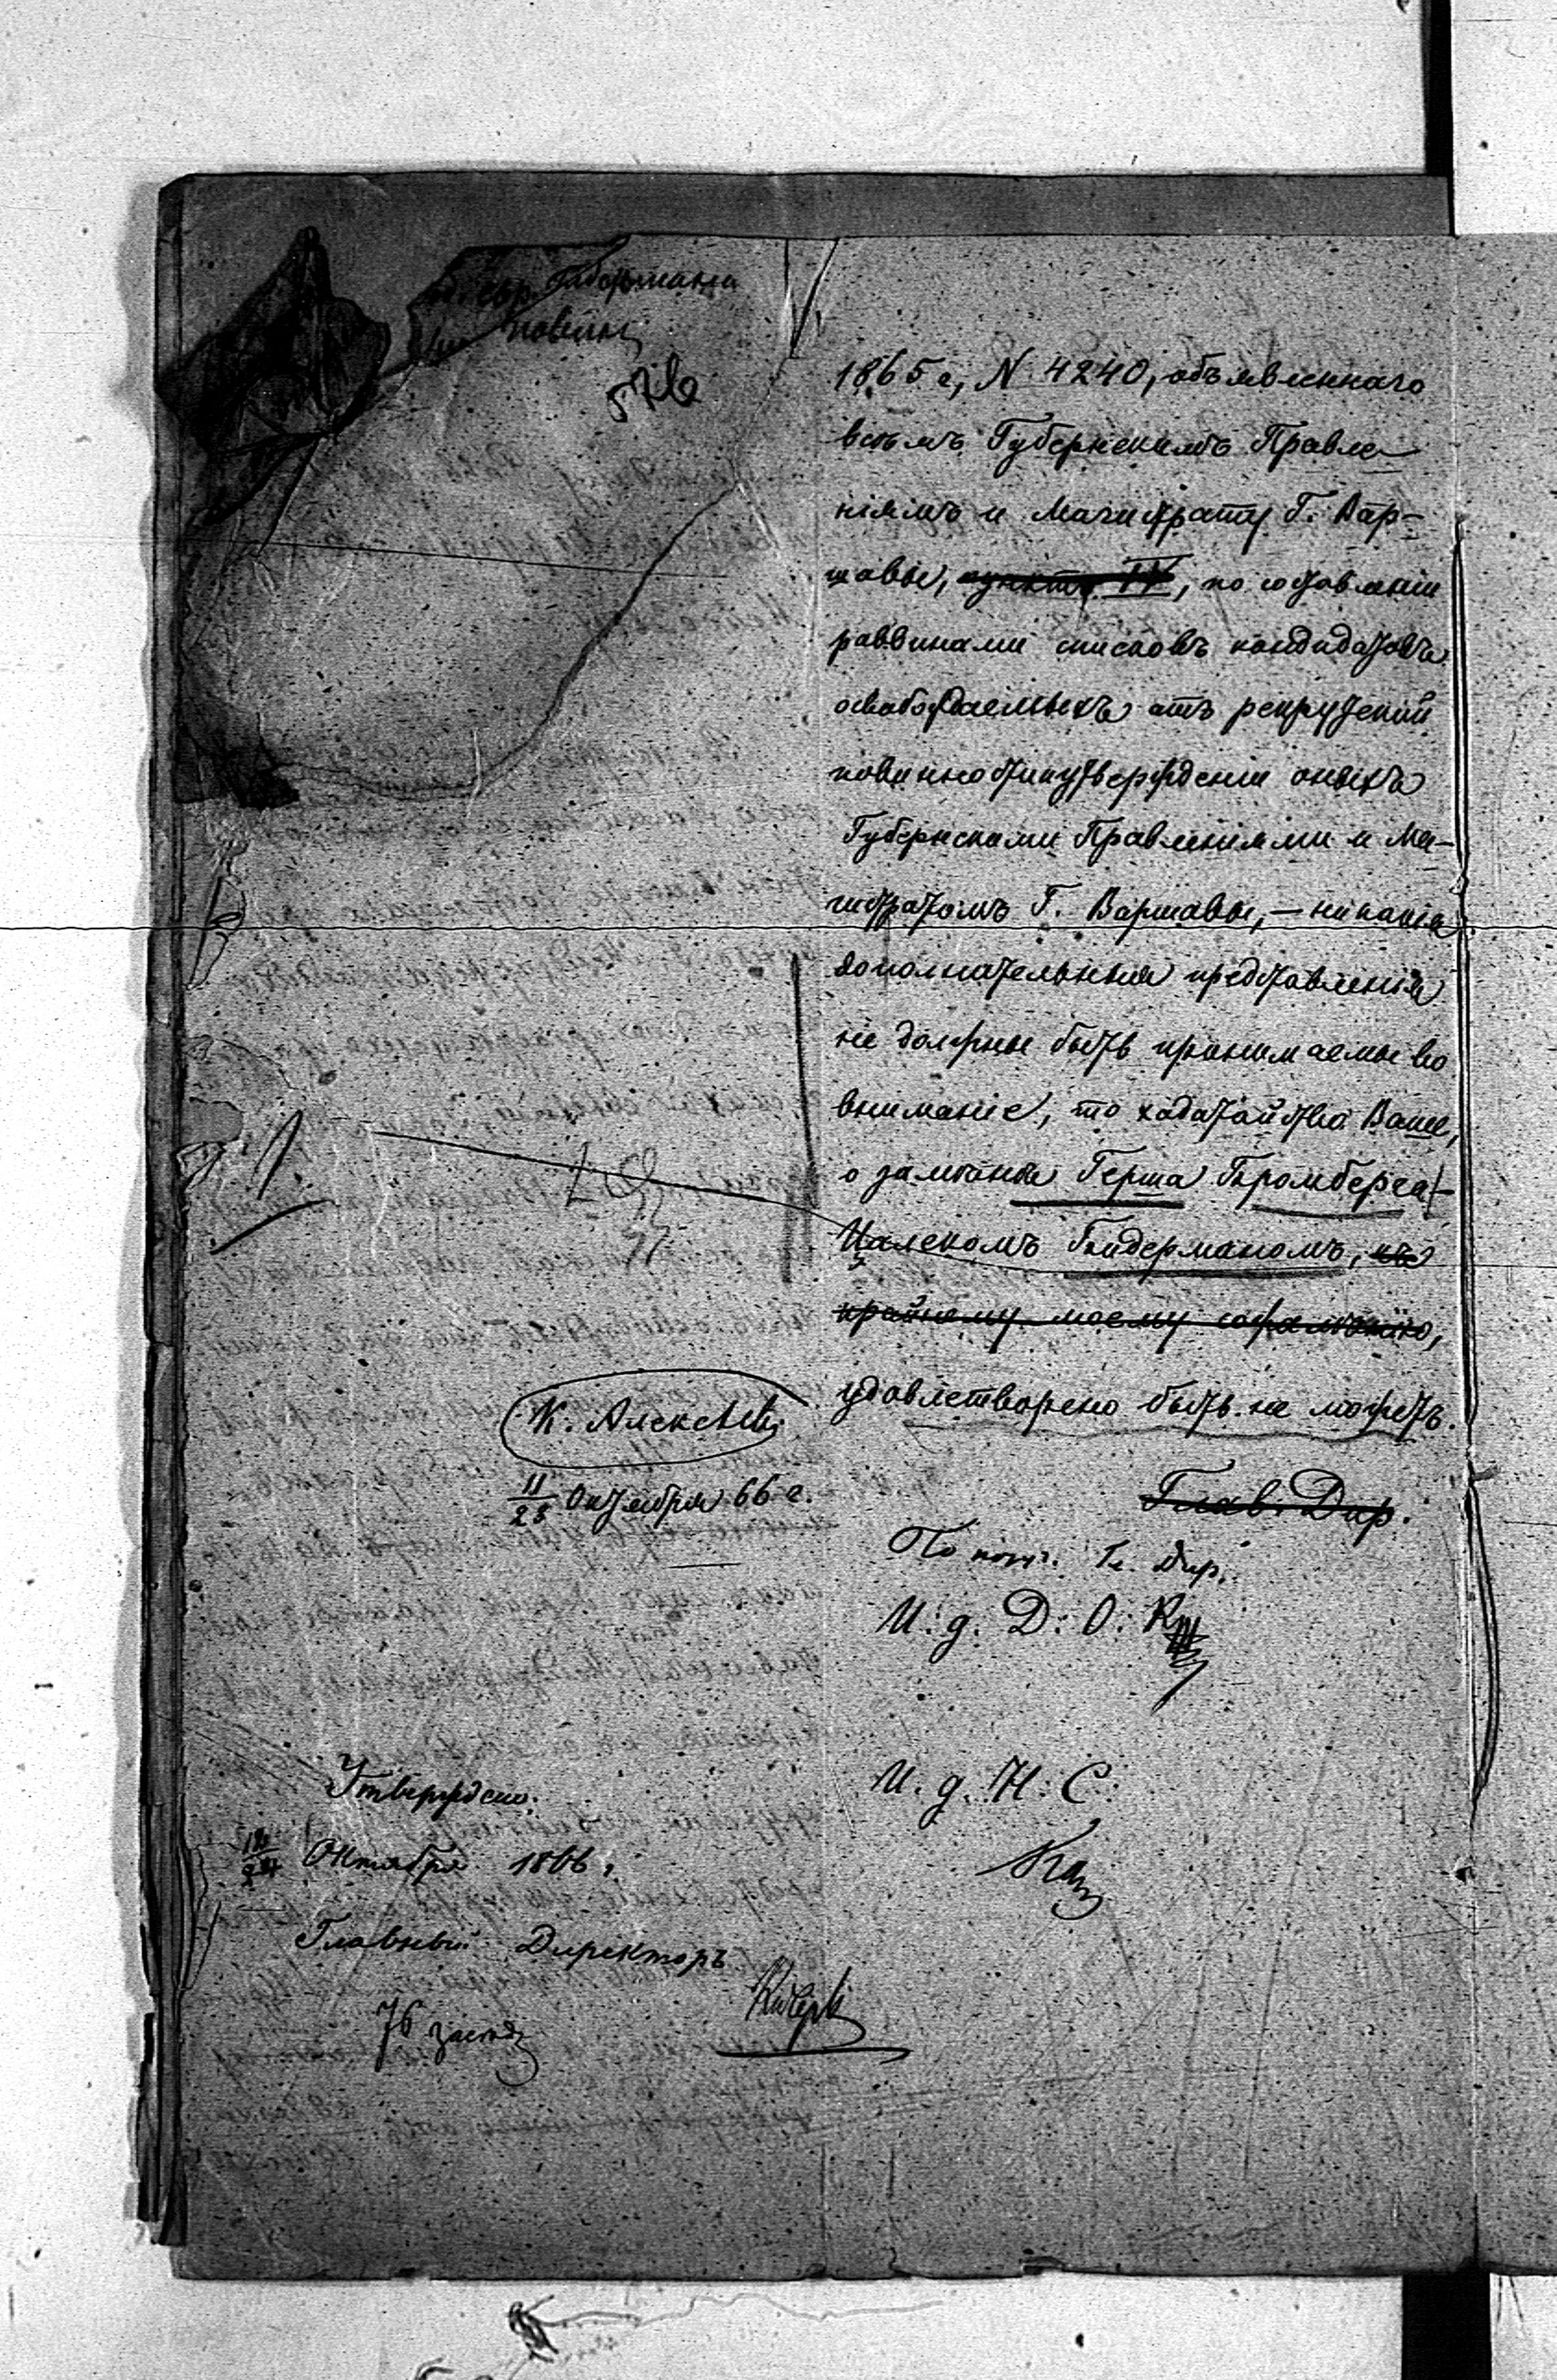 Губермана
576
1865 г, N 4240, объявленнаго
всѣмъ Губернскимъ Правле-
ніямъ и Магистрату Г. Вар-
шавы, пунктъ IV, по составленіи
раввинами списковъ кандидатовъ
освобождаемыхъ отъ рекрутской
повинности и утвержденіи оныхъ
Губернскими Правленіями и Ма-
гистратомъ Г. Варшавы, — никакія
дополнительныя представленія
не должны быть принимаемы во
вниманіе, то ходатайство Ваше,
о замѣнѣ Герша Бромберга
Ицалекомъ Бидерманомъ, къ
крайнему моему сожалѣнію,
удовлетворено быть не можетъ.
К. Алексѣев
11/23 Октября 66 г.
Глав. Дир.
По пор. Гл. Дир.
И. д. Д. О.
И. д. Н. С.
Утверждено.
12/24 Октября 1866 г.
Главный Директоръ